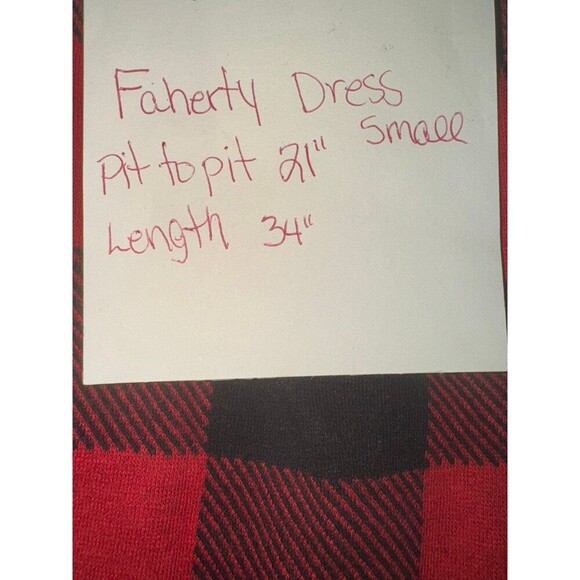 Faherty Dress
Small
Pit to pit 21"
Length 34"